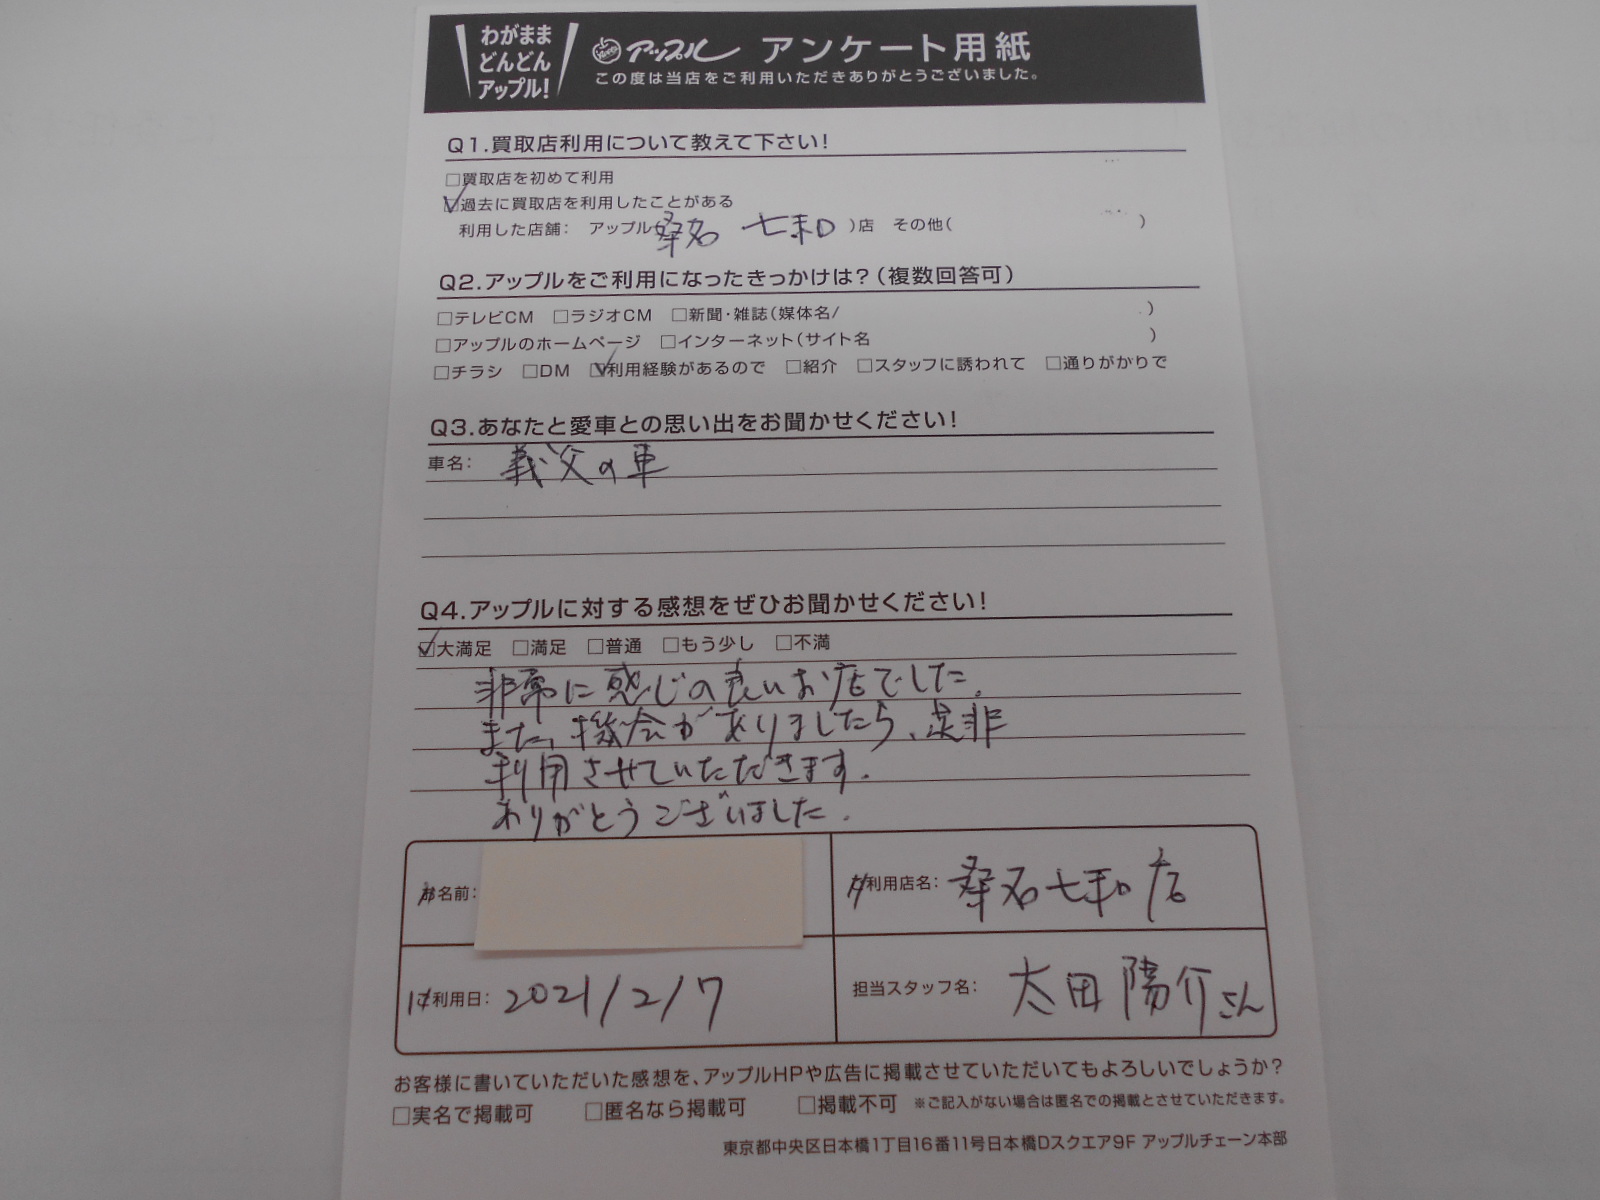 わがまま
どんどん
アップル!
アップル アンケート用紙
この度は当店をご利用いただきありがとうございました。
Q1.買取店利用について教えて下さい!
□買取店を初めて利用
☑過去に買取店を利用したことがある
利用した店舗: アップル(桑名 七和 )店 その他( )
Q2.アップルをご利用になったきっかけは?(複数回答可)
□テレビCM □ラジオCM □新聞・雑誌(媒体名/ )
□アップルのホームページ □インターネット(サイト名 )
□チラシ □DM ☑利用経験があるので □紹介 □スタッフに誘われて □通りがかりで
Q3.あなたと愛車との思い出をお聞かせください!
車名: 義父の車
Q4.アップルに対する感想をぜひお聞かせください!
☑大満足 □満足 □普通 □もう少し □不満
非常に感じの良いお店でした。
また、機会がありましたら、是非
利用させていただきます。
ありがとうございました。
お名前:
ご利用店名: 桑名七和店
ご利用日: 2021/2/7
担当スタッフ名: 太田陽介さん
お客様に書いていただいた感想を、アップルHPや広告に掲載させていただいてもよろしいでしょうか?
□実名で掲載可 □匿名なら掲載可 □掲載不可 ※ご記入がない場合は匿名での掲載とさせていただきます。
東京都中央区日本橋1丁目16番11号日本橋Dスクエア9F アップルチェーン本部